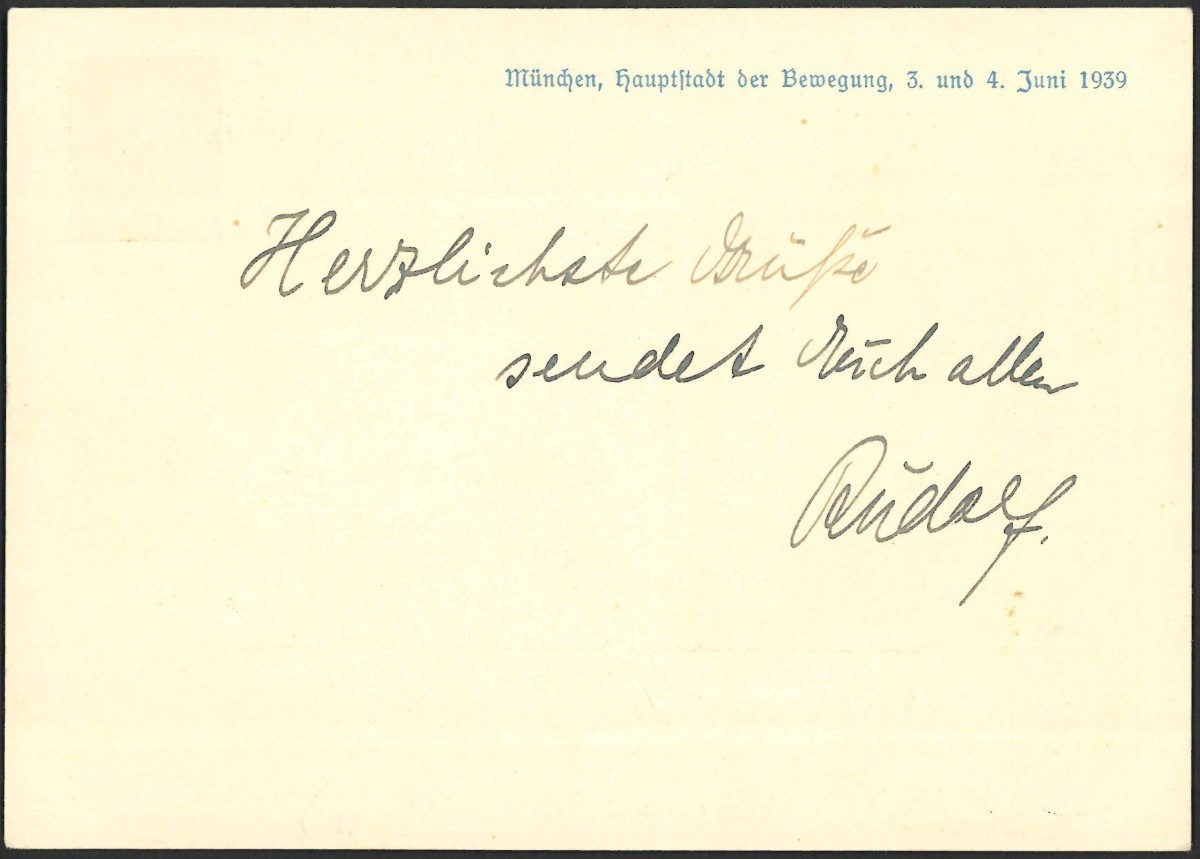 München, Hauptstadt der Bewegung, 3. und 4. Juni 1939
Herzlichste Grüße
sendet Euch allen
Rudolf.